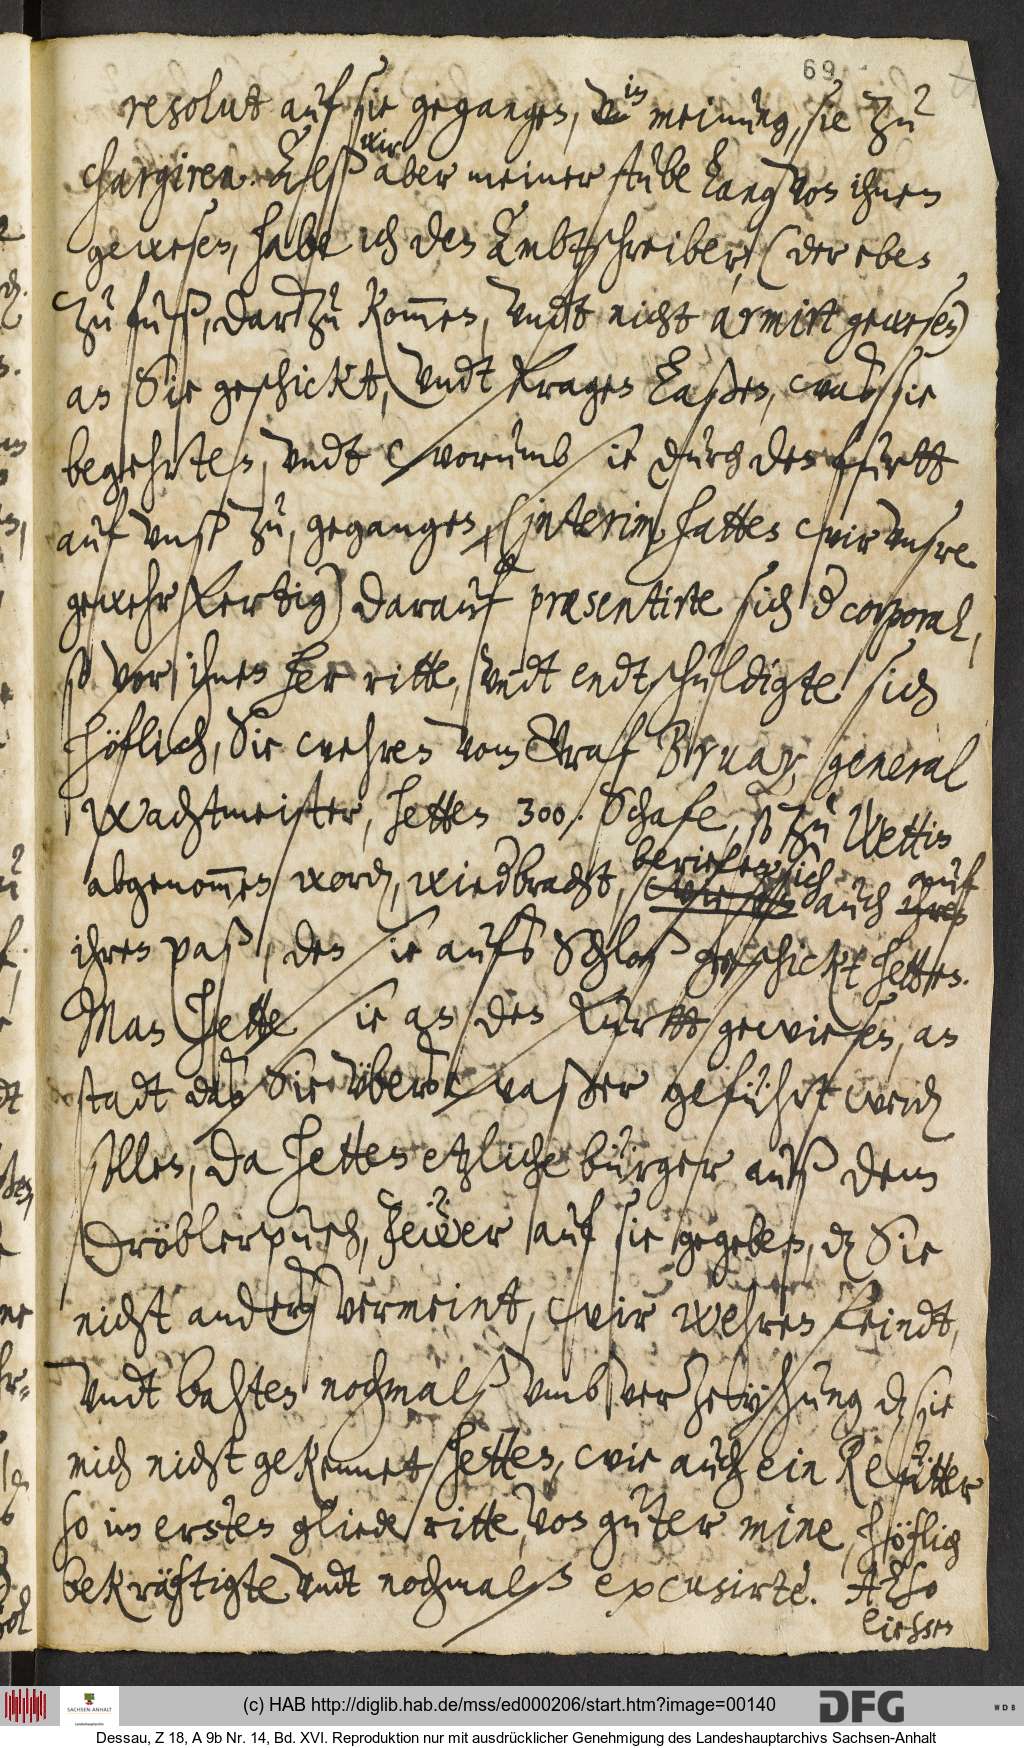 69.
resolut auf sie gegangen, in meinung, sie zu
chargiren. Alß wir aber meiner stube lang von ihnen
gewesen, habe ich den Ambtschreiber, (der eben
zu fuß, darzu kommen, undt nicht armirt gewesen)
an Sie geschickt, undt fragen laßen, was sie
begehrten, undt worumb sie durch den furtt
auf unß zu, gegangen, (interim hatten wir unsre
gewehr fertig) darauf præsentirte sich der corporal,
so vor ihnen her ritte, undt endtschuldigte sich
höflich, Sie wehren vom Graf Bruay, general
Wachtmeister, hetten 300. Schafe, so zu Wettin
abgenommen worden, wiederbracht, beriefen sich auch auf
ihren paß, den sie aufs Schloß geschickt hetten.
Man hette sie an den Furtt gewiesen, an
stadt daß Sie über waßer geführt werden
sollen, Da hetten etzliche bürger auß dem
Dröblerpusch, feüer auf sie gegeben, daß Sie
nicht anders vermeint, wir wehren feindt,
undt bahten nochmalß umb verzeyhung daß sie
mich nicht gekennet hetten, wie auch ein Reutter
so im ersten gliede ritte, von guter mine, höflich
bekräftigte undt nochmalß excusirte. Also
liessen
(c) HAB http://diglib.hab.de/mss/ed000206/start.htm?image=00140
SACHSEN-ANHALT
Landeshauptarchiv
DFG
WDB
Dessau, Z 18, A 9b Nr. 14, Bd. XVI. Reproduktion nur mit ausdrücklicher Genehmigung des Landeshauptarchivs Sachsen-Anhalt